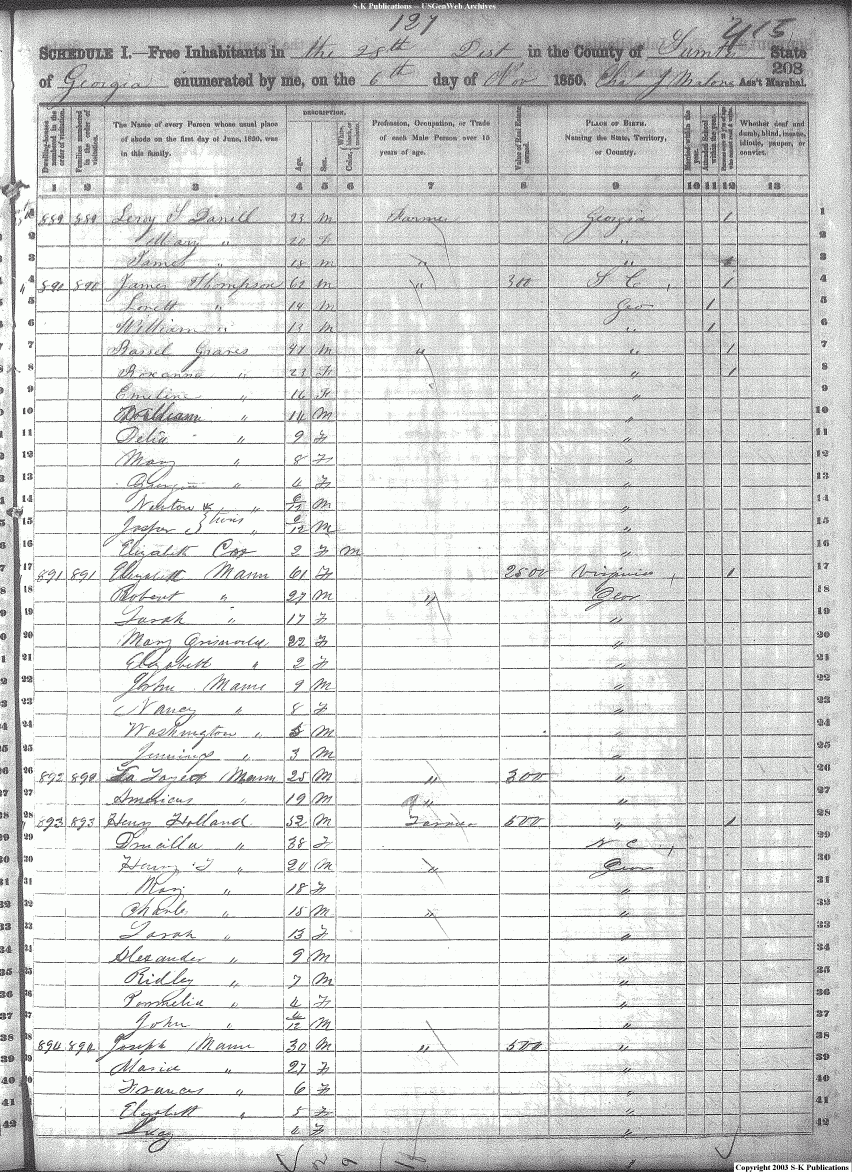 S-K Publications — USGenWeb Archives
127
415
SCHEDULE I.—Free Inhabitants in the 28th Dist in the County of Sumter State
208
of Georgia enumerated by me, on the 6th day of Nov 1850. Chas J Malone Ass't Marshal.
Dwelling-houses numbered in the order of visitation.
Families numbered in the order of visitation.
The Name of every Person whose usual place of abode on the first day of June, 1850, was in this family.
DESCRIPTION.
Age.
Sex.
White, black, or mulatto.
Profession, Occupation, or Trade of each Male Person over 15 years of age.
Value of Real Estate owned.
PLACE OF BIRTH. Naming the State, Territory, or Country.
Married within the year.
Attended School within the year.
Persons over 20 y'rs of age who cannot read & write.
Whether deaf and dumb, blind, insane, idiotic, pauper, or convict.
1 2 3 4 5 6 7 8 9 10 11 12 13
1 889 889 Leroy S Daniell 23 M Farmer Georgia 1 1
2 Mary " 20 F " 2
3 James " 18 M " " 3
4 890 890 James Thompson 62 M " 300 S C 1 4
5 Lovett " 14 M Geo 1 5
6 William " 13 M " 1 6
7 Russel Graves 47 M " " 1 7
8 Roxanna " 23 F " 1 8
9 Emeline " 16 F " 9
10 William " 14 M " 10
11 Delia " 9 F " 11
12 Mary " 8 F " 12
13 Georgia " 4 F " 13
14 Newton " 6/12 M " 14
15 Josper } twins " 6/12 M " 15
16 Elizabeth Cox 2 F M " 16
17 891 891 Elizabeth Mann 61 F 2500 Virginia 1 17
18 Robert " 27 M " Geor 18
19 Sarah " 17 F " 19
20 Mary Griswold 22 F " 20
21 Elizabeth " 2 F " 21
22 John Mann 9 M " 22
23 Nancy " 8 F " 23
24 Washington " 5 M " 24
25 Jennings " 3 M " 25
26 892 892 La Fayett Mann 25 M " 300 " 26
27 Americus " 19 M " " 27
28 893 893 Henry Holland 52 M Farmer 500 " 1 28
29 Drucilla " 38 F N C 29
30 Henry T " 20 M " Geor 30
31 Mary " 18 F " 31
32 Charles " 15 M " " 32
33 Sarah " 13 F " 33
34 Alexander " 9 M " 34
35 Ridley " 7 M " 35
36 Pormelia " 4 F " 36
37 John " 4/12 M " 37
38 894 894 Joseph Mann 30 M " 500 " 38
39 Maria " 27 F " 39
40 Frances " 6 F " 40
41 Elizabeth " 5 F " 41
42 Lucy 4 F " 42
Copyright 2003 S-K Publications